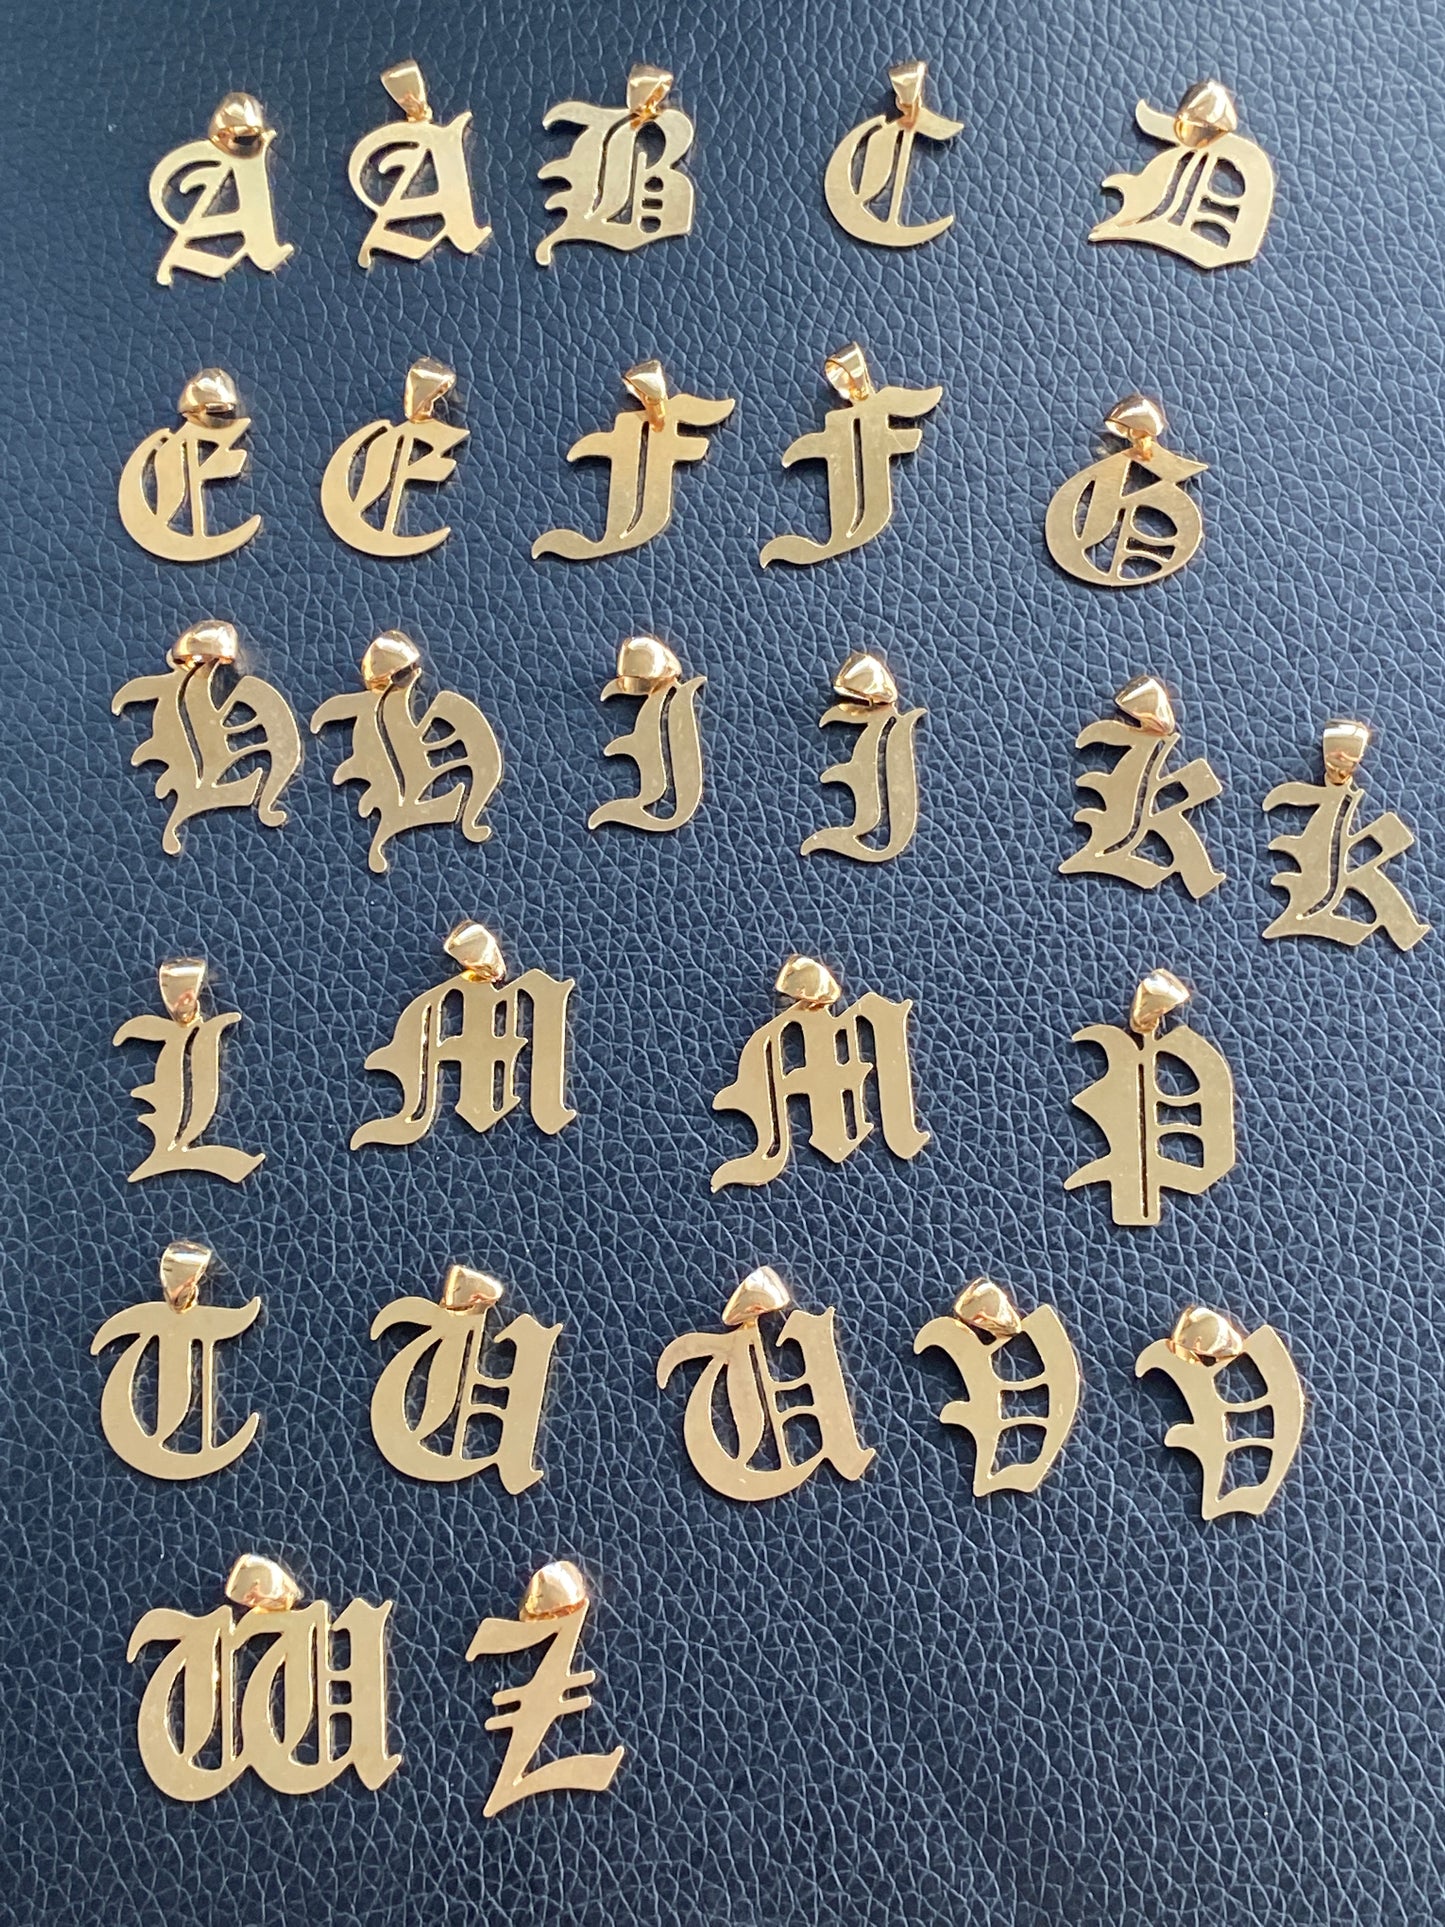 A A B C D
E E F F G
H H I J K K
L M M P
T U U V V
W Z